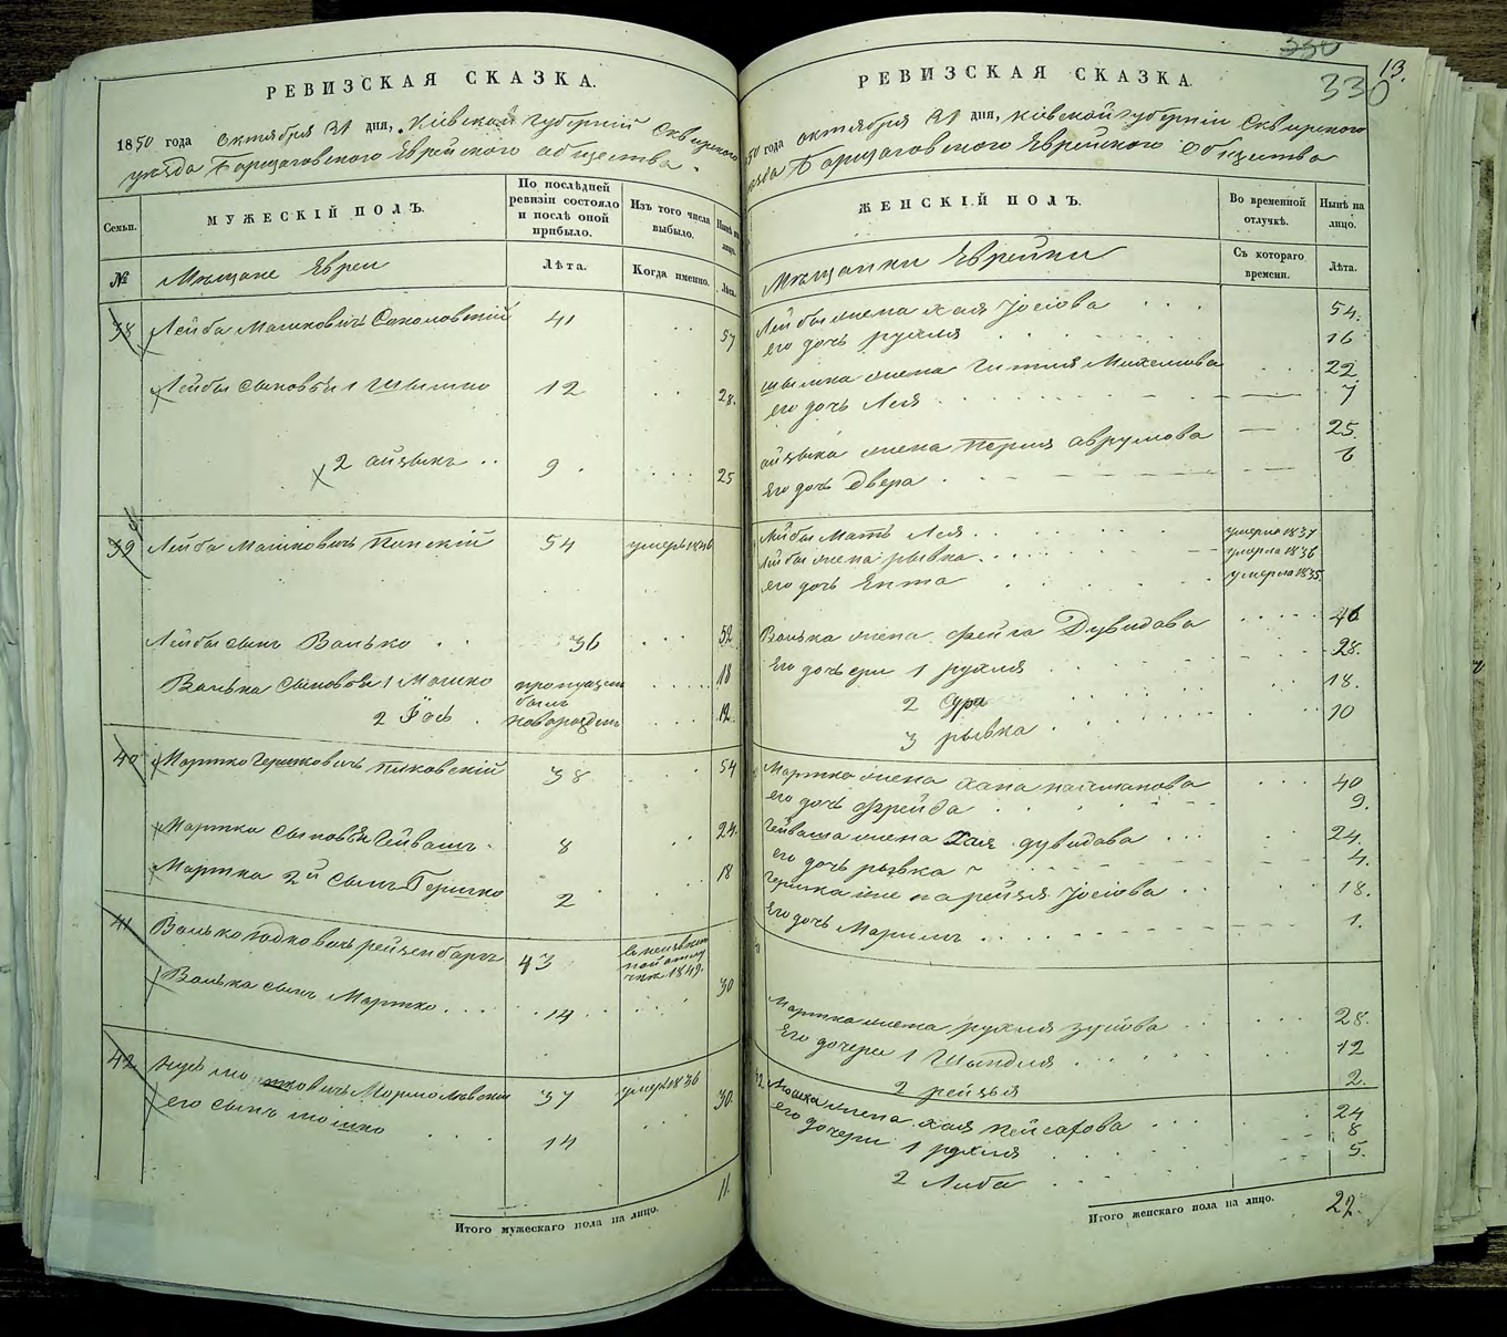 РЕВИЗСКАЯ СКАЗКА.
1850 года Октября 31 дня, Кіевской Губерніи Сквирского
уѣзда Борщаговского Еврейского общества.
Семьи.
МУЖЕСКІЙ ПОЛЪ.
По послѣдней
ревизіи состояло
и послѣ оной
прибыло.
Изъ того числа
выбыло.
Нынѣ на
лицо.
№
Мѣщане Евреи
Лѣта.
Когда именно.
Лѣта.
38 Лейба Мошковичъ Соколовскій 41 57
Лейбы сыновья 1 Шлымко 12 28.
2 айзыкъ 9. 25
39 Лейба Мошковичъ Пинскій 54 умеръ 1846
Лейбы сынъ Волько 36 52
Волька сыновья 1 Мошко пропущенъ 18
былъ
2 Іось новорожденъ 12.
40 Мортко Гершковичъ Пиковскій 38 54
Мортка сыновья Лейвашъ 8 24.
Мортка 2й сынъ Гершко 2 18
41 Волько Іодковичъ рейзенбаргъ 43 1849.
Волька сынъ Мортко 14 30
42 37 умеръ 1836
его сынъ мошко 14 30.
Итого мужескаго пола на лицо. 11.
330
330
13.
РЕВИЗСКАЯ СКАЗКА.
50 года октября 31 дня, Кіевской губерніи Сквирского
уѣзда Борщаговского Еврейского общества
ЖЕНСКІЙ ПОЛЪ.
Во временной
отлучкѣ.
Нынѣ на
лицо.
Мѣщанки Еврейки
Съ котораго
времени.
Лѣта.
Лейбы жена хая Іосіова 54.
его дочь рухля 16
жена Гитля 22
его дочь Лея 7
айзыка жена Перля аврумова 25.
Его дочь Двера 6
Лейбы Мать Лея умерла 1837
Лейбы жена рывка умерла 1836
его дочь Ента умерла 1835.
Волька жена фейга Дувидова 46
Его дочери 1 рухля 28.
2 Сура 18.
3 рывка 10
Мортка жена хана 40
его дочь фрейда 9.
жена Хая дувидова 24.
его дочь рывка 4.
Гершка жена рейзя Іосіова 18.
Его дочь Маріамъ 1.
Мортка жена рухля зусіова 28.
Его дочери 1 Шындля 12
2 рейзья 2.
42 мошка жена хая Пейсахова 24
его дочери 1 рухля 8
2 Либа 5.
Итого женскаго пола на лицо. 22.